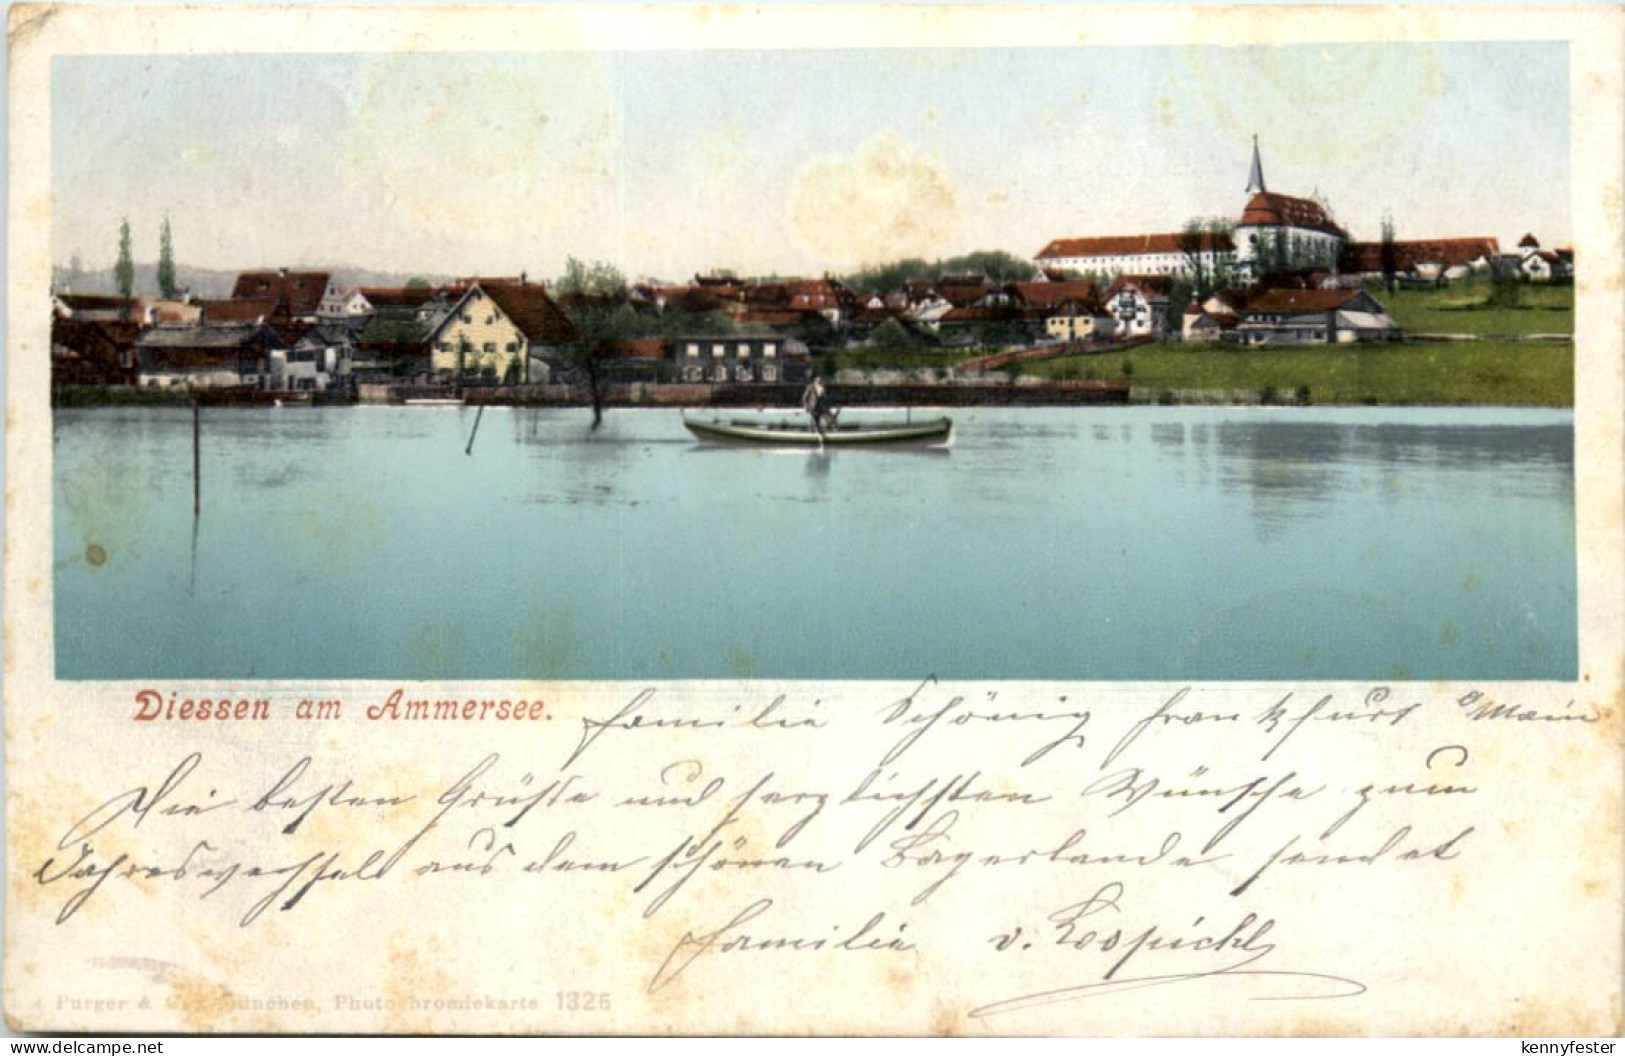 Diessen am Ammersee.
Familie Schönig Frankfurt a/Main
Die besten Grüße und herzlichsten Wünsche zum
Jahreswechsel aus dem schönen Bayerlande sendet
Familie v.
Purger & Co., München, Photochromiekarte 1326
delcampe.net
kennyfester